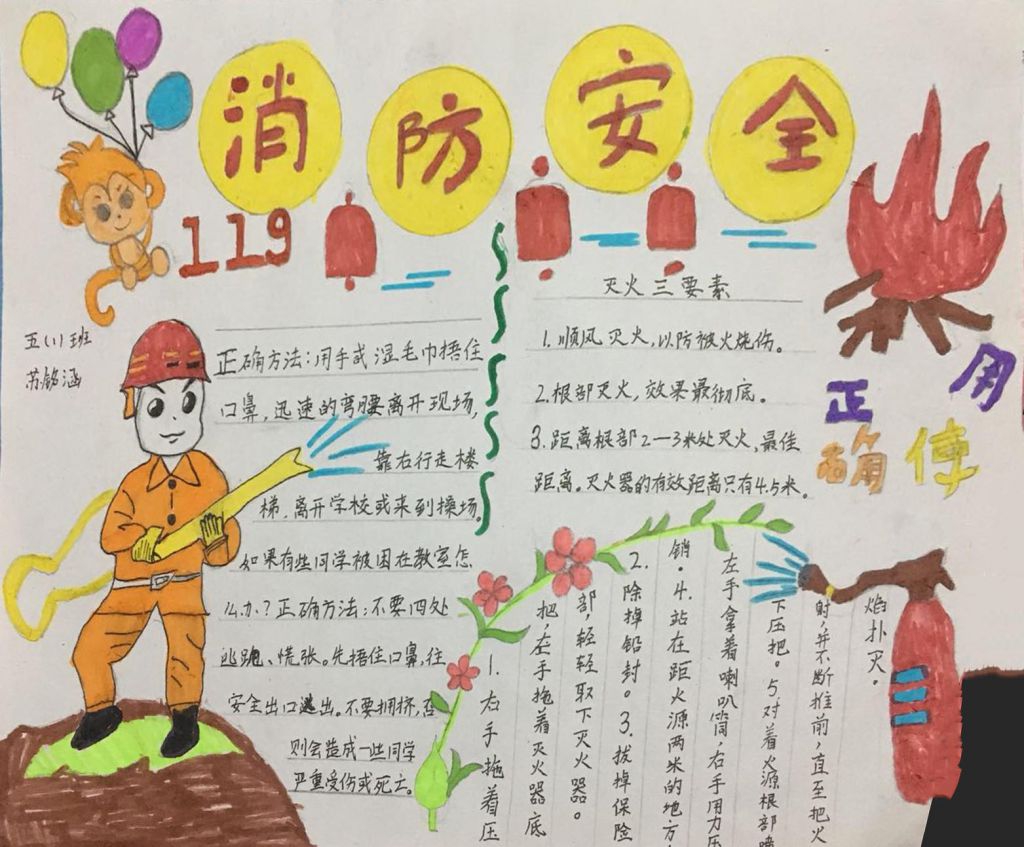 消防安全
119
五(1)班
苏铭涵
正确方法:用手或湿毛巾捂住
口鼻,迅速的弯腰离开现场,
靠右行走楼
梯,离开学校或来到操场。
如果有些同学被困在教室怎
么办?正确方法:不要四处
逃跑、慌张。先捂住口鼻,往
安全出口逃出。不要拥挤,否
则会造成一些同学
严重受伤或死亡。
灭火三要素
1.顺风灭火,以防被火烧伤。
2.根部灭火,效果最彻底。
3.距离根部2—3米处灭火,最佳
距离。灭火器的有效距离只有4.5米。
正确使用
1.右手拖着压
把,左手拖着灭火器底
部,轻轻取下灭火器。
2.除掉铅封。3.拔掉保险
销。4.站在距火源两米的地方,
左手拿着喇叭筒,右手用力压
下压把。5.对着火源根部喷
射,并不断推前,直至把火
焰扑灭。